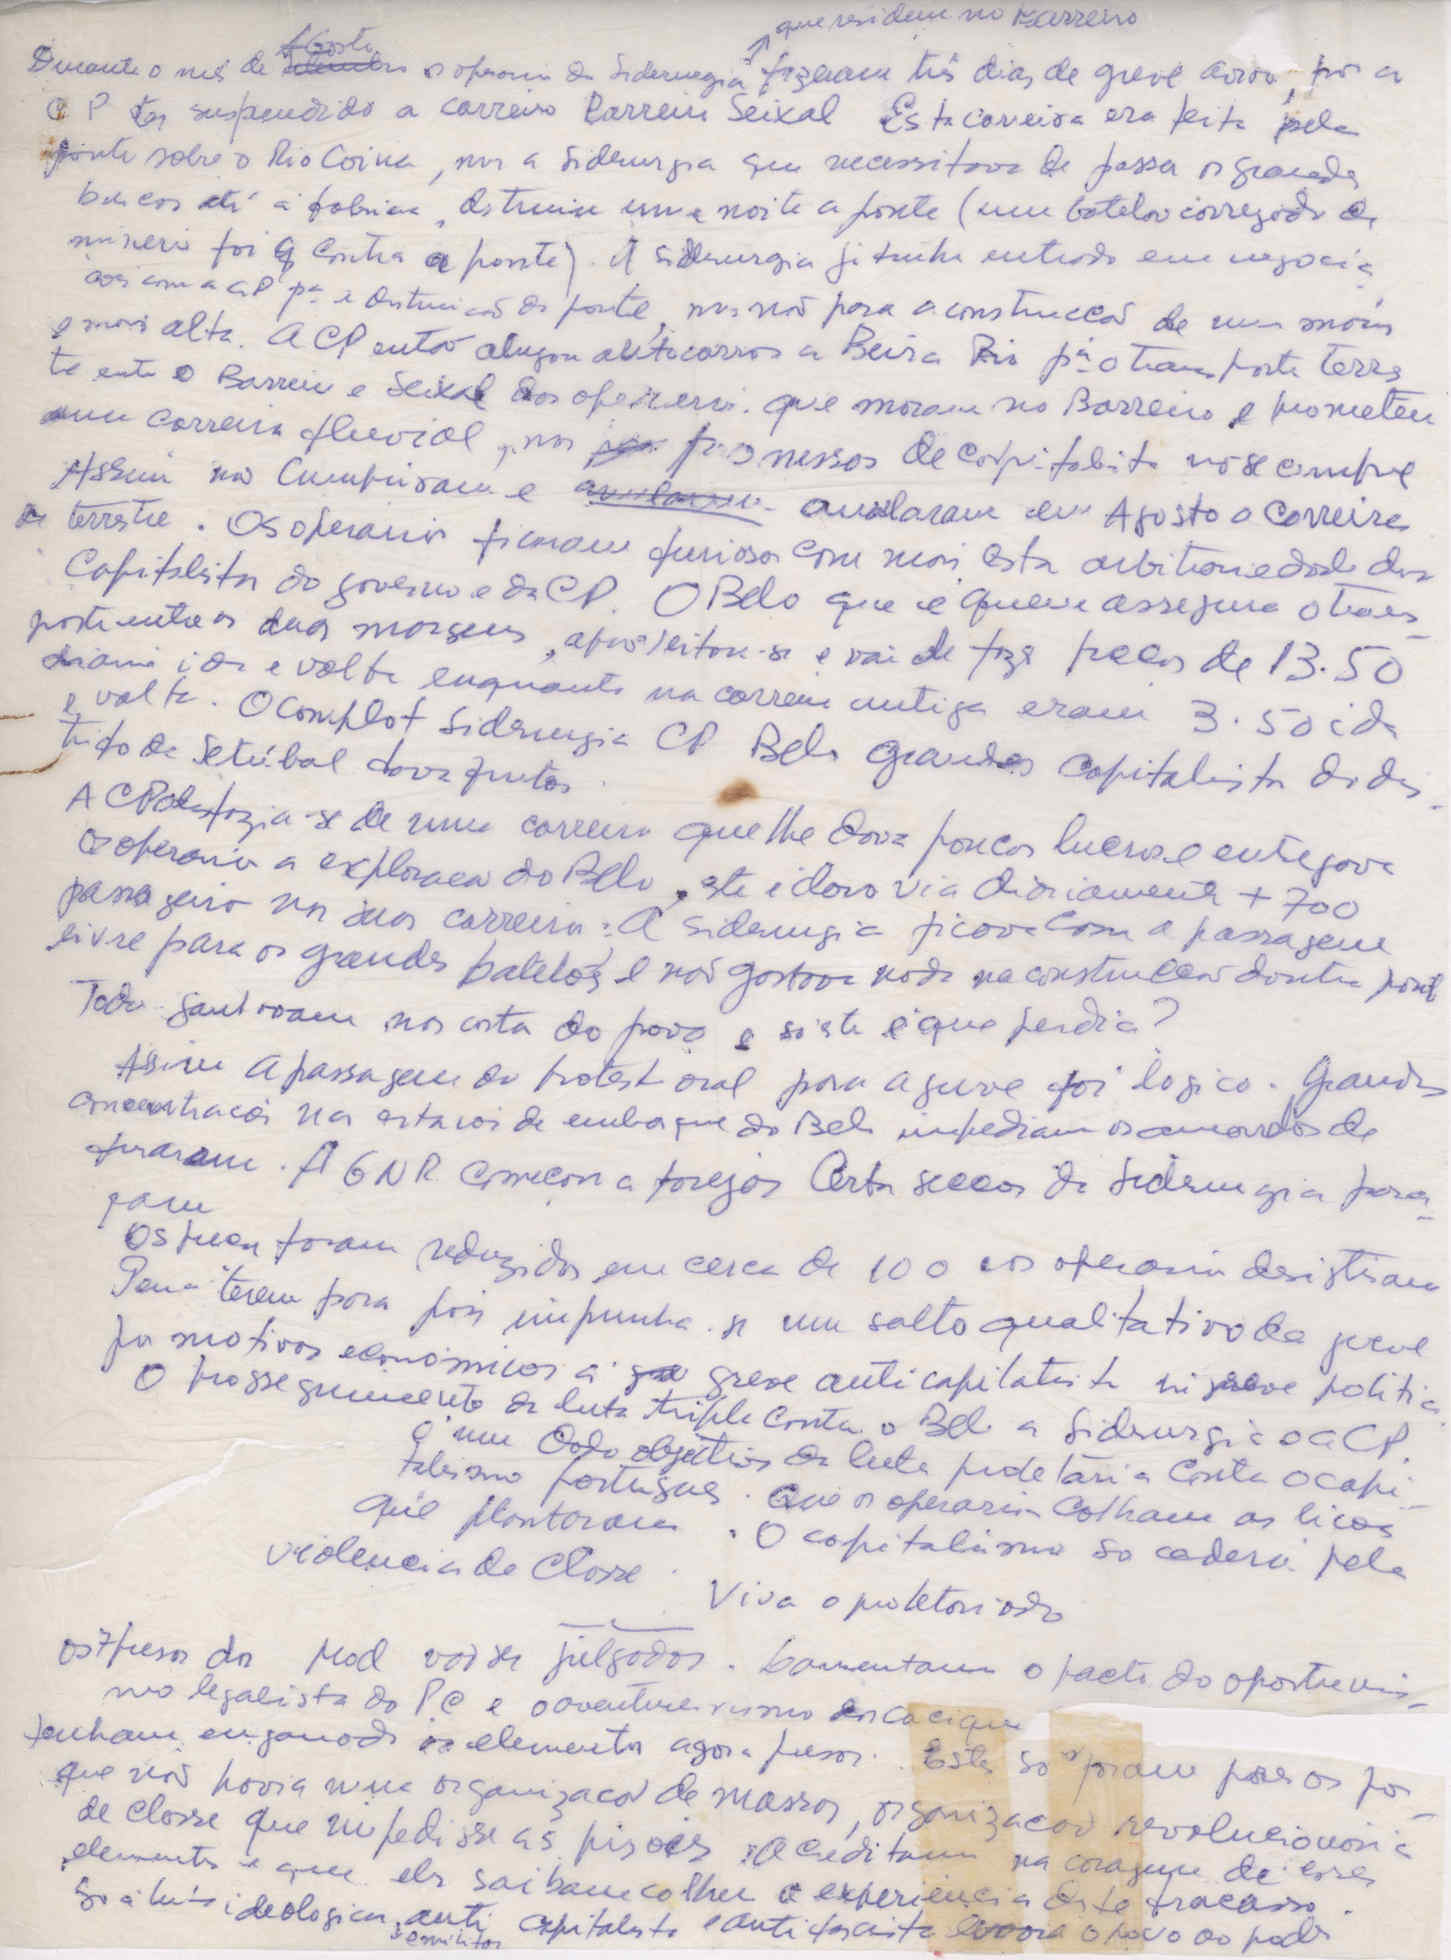 que residem no Barreiro
Agosto
Durante o mês de Setembro os operarios da Siderurgia fizeram três dias de greve, por a
CP ter suspendido a carreira Barreiro Seixal Esta carreira era feita pela
ponte sobre o Rio Coina, mas a Siderurgia que necessitava de passar os grandes
barcos até á fabrica, destruiu uma noite a ponte (um batelão carregado de
minerio foi q contra a ponte). A Siderurgia já tinha entrado em negocia
ções com a CP pª a destruição da ponte, mas não para a construccão de uma mais
e mais alta. A CP então alugou autocarros a Beira Rio pª o transporte terres
te entre o Barreiro e Seixal dos operarios que moram no Barreiro e prometeu
uma carreira fluvial, mas promessas de capitalista não se cumpre
Assim não cumpriram e anularam em Agosto a carreira
terrestre. Os operarios ficaram furiosos com mais esta arbitrariedade dos
Capitalistas do governo e da CP. O Belo que é quem assegura o trans-
porte entre as duas margens, aproveitou-se e vai de fazer preços de 13.50
diarios ida e volta enquanto na carreira antiga eram 3.50 ida
e volta. O complot Siderurgia CP Belo grandes capitalistas do dis-
trito de Setúbal dava frutos.
A CP desfazia-se de uma carreira que lhe dava poucos lucros e entregava
os operarios a exploração do Belo, este é claro via diariamente + 700
passageiros nas suas carreiras: A Siderurgia ficava com a passagem
livre para os grandes batelões e não gastava nada na construccão doutra ponte
Todos ganhavam nas costa do povo e só este é que perdia?
Assim a passagem do protesto oral para a greve foi lógico. Grandes
concentrações nas estações de embarque do Belo impediam os de
furarem. A GNR começou a forejar Certas seccos da Siderurgia para-
ram
Os preços foram reduzidos em cerca de 100 e os operarios desistiram
Pena terem parado pois impunha-se um salto qualitativo da greve
por motivos económicos á greve anticapitalista ni greve politica
O prosseguimento da luta tripla contra o Belo a Siderurgia e a CP.
é um dado objectivo da luta proletária contra o capi-
talismo português. Que os operarios colham as licoes
que plantaram. O capitalismo so cederá pela
violencia de Classe.
Viva o proletariado
os 7 presos da Mod vão ser julgados. Lamentamos o facto do oportunis-
mo legalista do PC e o aventureirismo dos caciques
tenham enganado os elementos agora presos. Estes so foram presos por
que não havia uma organização de massas, organização revolucionária
de classe que impedisse as prisões. Acreditamos na coragem de esses
elementos e que eles saibam colher a experiencia deste fracasso.
So a luta ideologica, anti capitalista e anti fascista levara o povo ao poder